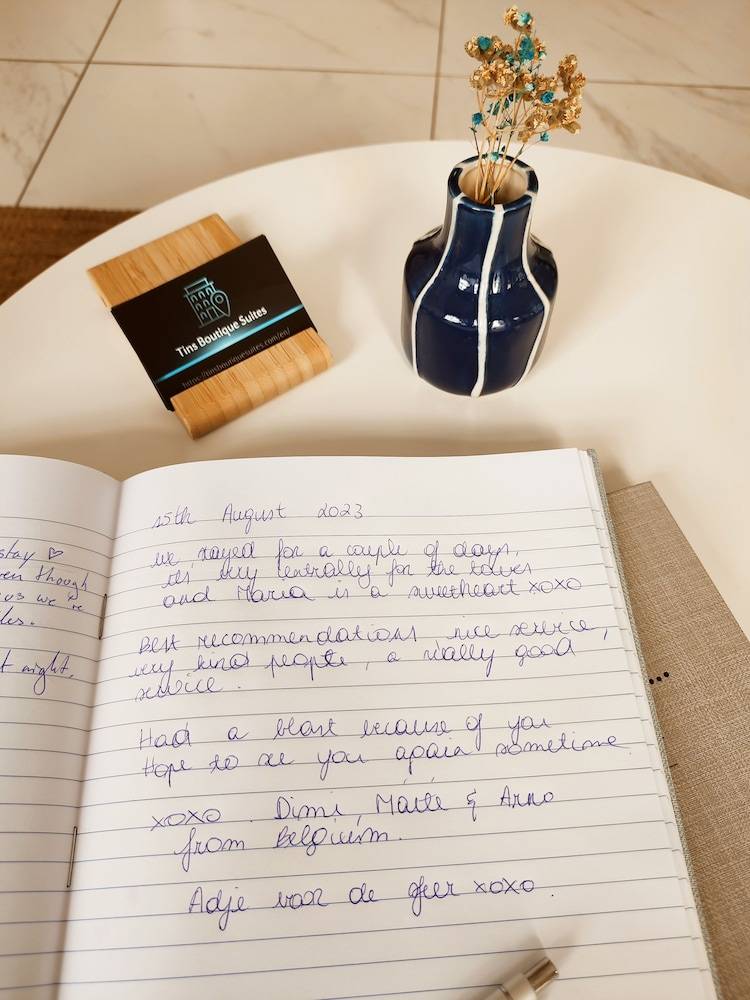 Tins Boutique Suites
https://tinsboutiquesuites.com/en/
stay ♡
though
us we're
night.
15th August 2023
We stayed for a couple of days,
it's very centrally for the
and Maria is a sweetheart xoxo
Best recommendations, nice service,
very kind people, a really good
service.
Had a blast because of you
Hope to see you again sometime
xoxo. Dimi, & Arno
from Belguim.
Adje voor de sfeer xoxo.